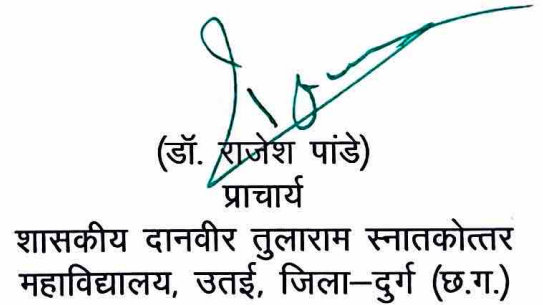 (डॉ. राजेश पांडे)
प्राचार्य
शासकीय दानवीर तुलाराम स्नातकोत्तर
महाविद्यालय, उतई, जिला–दुर्ग (छ.ग.)